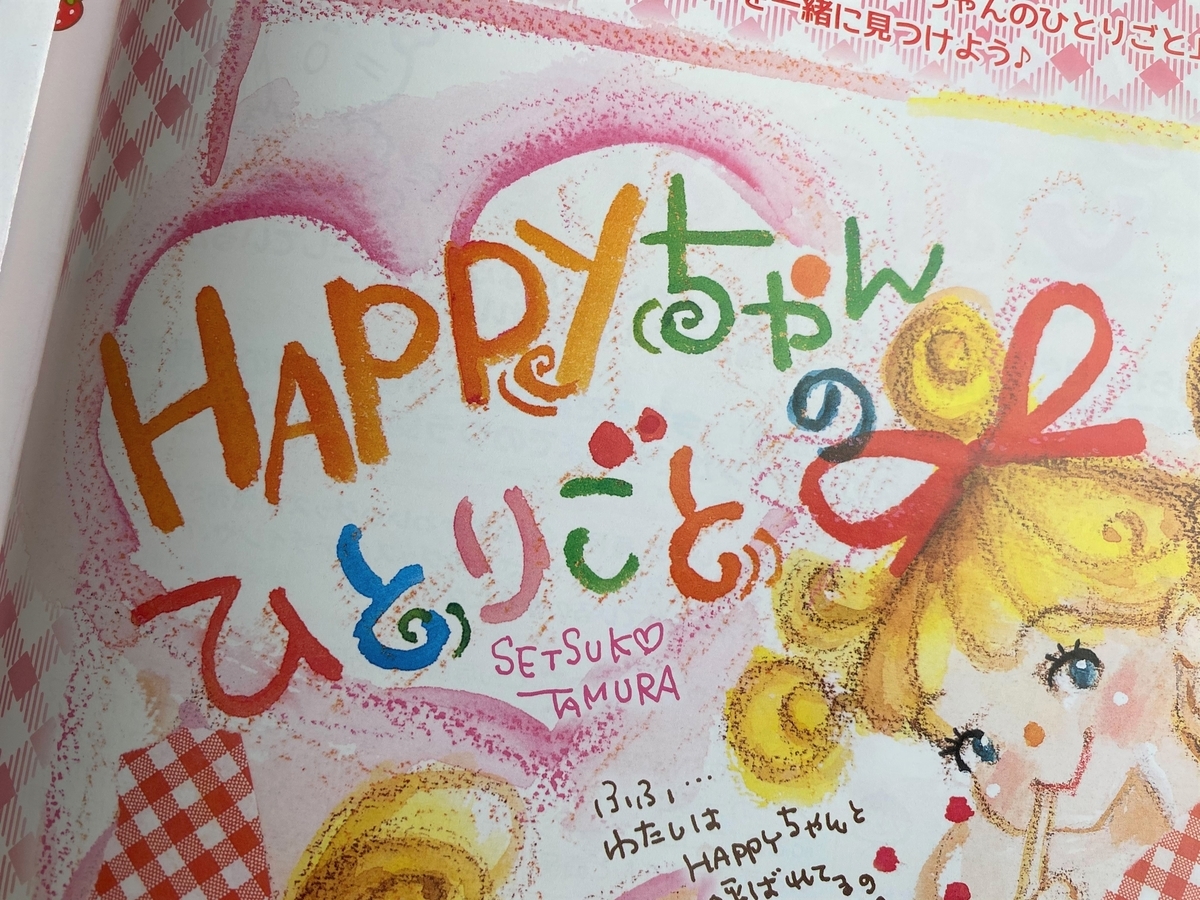 ちゃんのひとりごと」
を一緒に見つけよう♪
HAPPYちゃんの
ひとりごと
SETSUKO
TAMURA
ふふふ…
わたしは
HAPPYちゃんと
呼ばれてるの